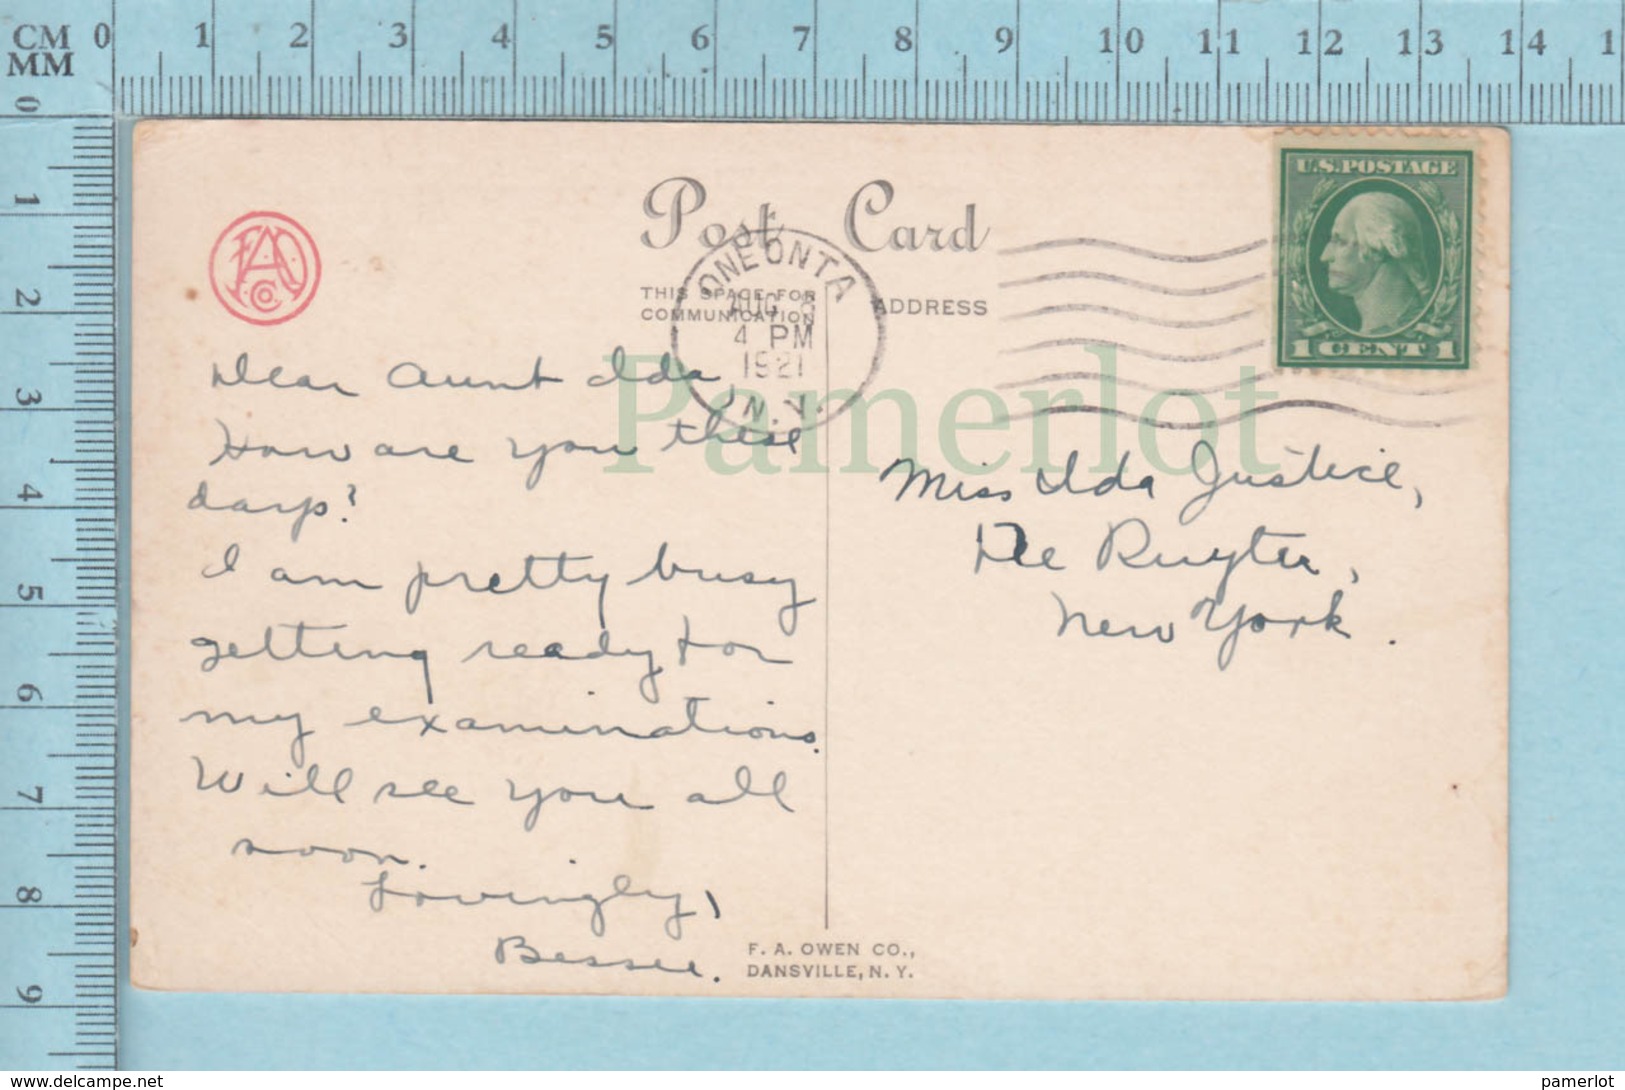 CM 0 1 2 3 4 5 6 7 8 9 10 11 12 13 14 1
MM
0 1 2 3 4 5 6 7 8 9
FAO
CO
Post Card
THIS SPACE FOR
COMMUNICATION
ADDRESS
ONEONTA
AUG
4 PM
1921
N.Y.
U.S. POSTAGE
1 CENT 1
Pamerlot
Dear Aunt Ida,
How are you these
days?
I am pretty busy
getting ready for
my examinations.
Will see you all
soon.
Lovingly,
Bessie.
Miss Ida Justice,
De Ruyter,
New York.
F. A. OWEN CO.,
DANSVILLE, N. Y.
www.delcampe.net
pamerlot